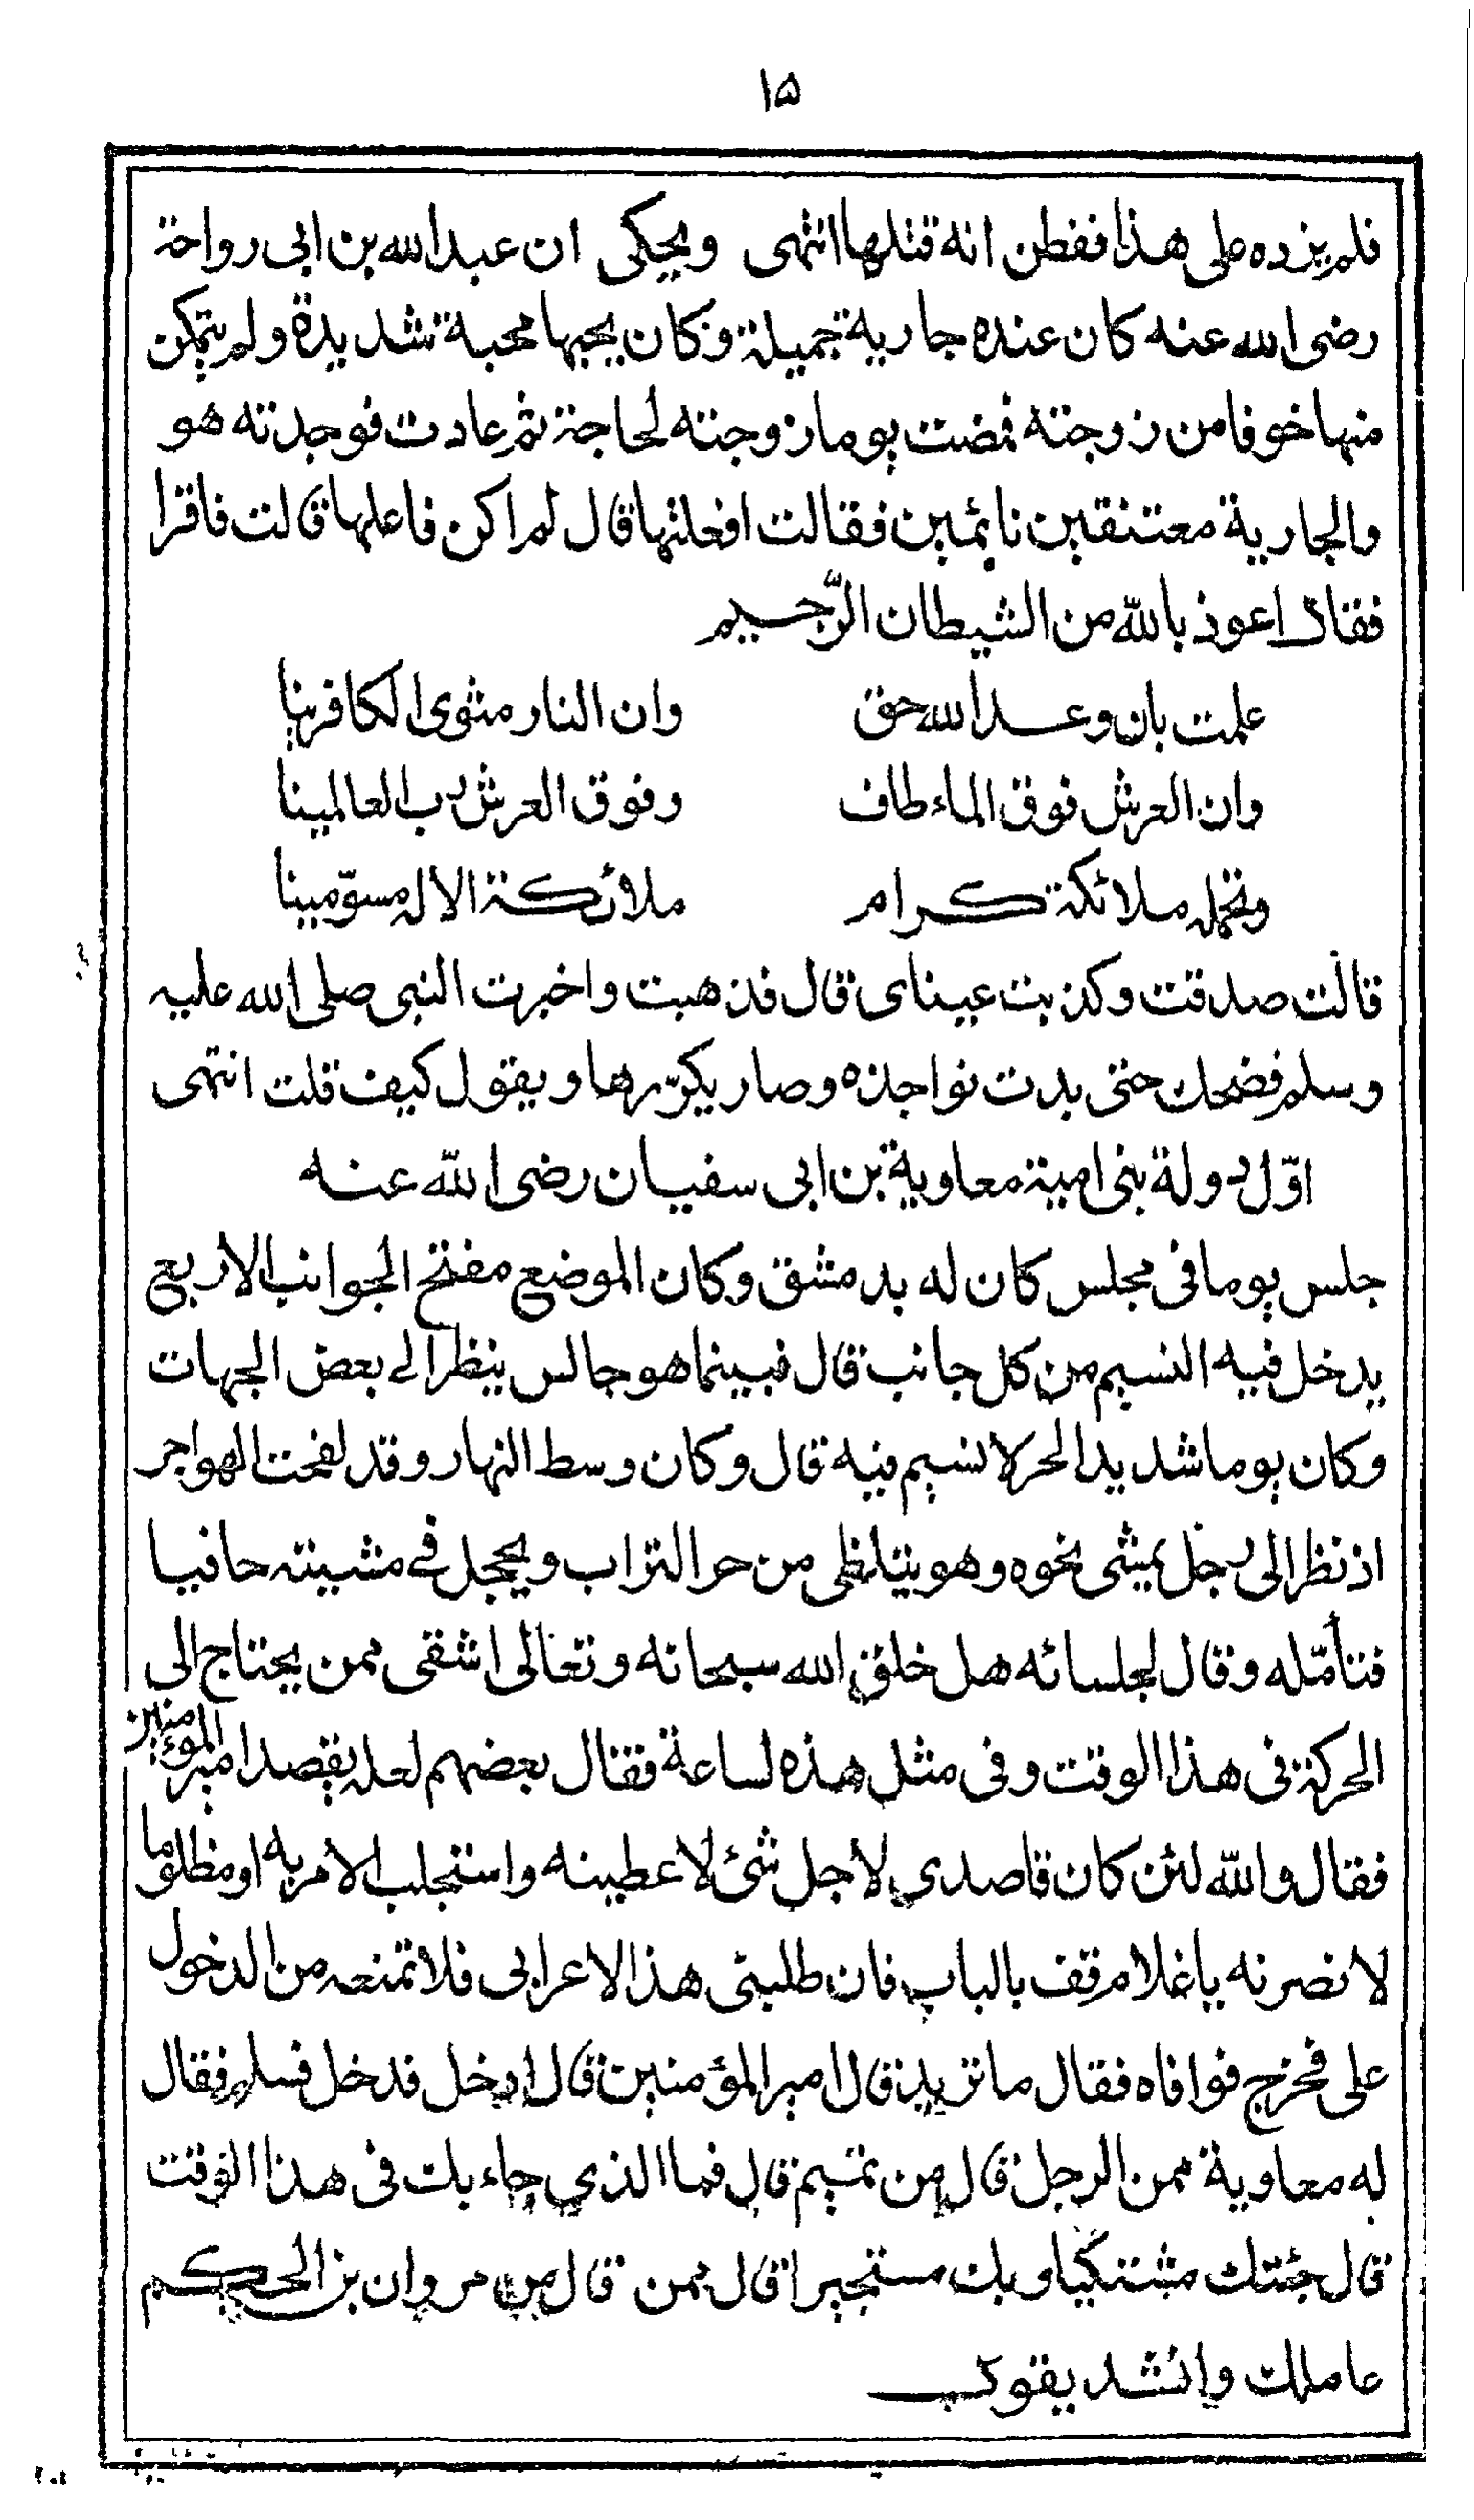 ١٥
فلم يزده على هذا ففطن انه قتلها انتهى ويحكى ان عبد الله بن ابى رواحة
رضى الله عنه كان عنده جارية جميلة وكان يحبها محبة شديدة ولم يتمكن
منها خوفا من زوجته فمضت يوما زوجته لحاجة ثم عادت فوجدته هو
والجارية معتنقين نائمين فقالت افعلتها قال لم اكن فاعلها قالت فاقرا
فقال اعوذ بالله من الشيطان الرّجيم
علمت بان وعد الله حق وان النار مثوى الكافرينا
وان العرش فوق الماء طاف وفوق العرش رب العالمينا
وتحمله ملائكة كرام ملائكة الاله مسوّمينا
قالت صدقت وكذبت عيناى قال فذهبت واخبرت النبى صلى الله عليه
وسلم فضحك حتى بدت نواجذه وصار يكرّرها ويقول كيف قلت انتهى
اوّل دولة بنى امية معاوية بن ابى سفيان رضى الله عنه
جلس يوما فى مجلس كان له بدمشق وكان الموضع مفتح الجوانب الاربع
يدخل فيه النسيم من كل جانب قال فبينما هو جالس ينظر الى بعض الجهات
وكان يوما شديد الحر لا نسيم فيه قال وكان وسط النهار وقد لفحت الهواجر
اذ نظر الى رجل يمشى نحوه وهو يتلظى من حر التراب ويحجل فى مشيته حافيا
فتأمّله وقال لجلسائه هل خلق الله سبحانه وتعالى اشقى ممن يحتاج الى
الحركة فى هذا الوقت وفى مثل هذه لساعة فقال بعضهم لعله يقصد امير المؤمنين
فقال والله لئن كان قاصدي لاجل شئ لاعطينه واستجلب الامر به او مظلوما
لانصرنه يا غلام قف بالباب فان طلبنى هذا الاعرابى فلا تمنعه من الدخول
على فخرج فوافاه فقال ما تريد قال امير المؤمنين قال ادخل فدخل فسلم فقال
له معاوية ممن الرجل قال من تميم قال فما الذي جاء بك فى هذا الوقت
قال جئتك مشتكيا وبك مستجيرا قال ممن قال من مروان بن الحكم
عاملك وانشد يقول